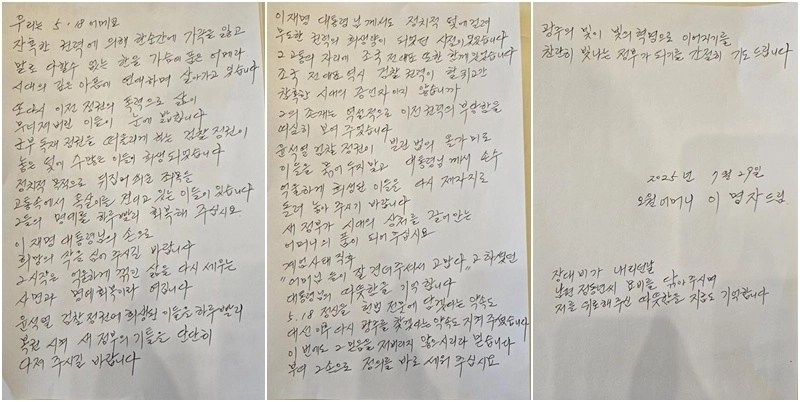 우리는 5·18 어메요
잔혹한 권력에 의해 한순간에 가족을 잃고
말로 다할수 없는 한을 가슴에 품은 어메라
시대의 깊은 아픔에 연대하며 살아가고 있습니다
또다시 이전 정권의 폭력으로 삶이
무너져 버린 이들이 눈에 밟힙니다
군부 독재 정권을 떠올리게 하는 검찰 정권이
놓은 덫에 수많은 이들이 희생 되었습니다
정치적 목적으로 뒤집어 씌운 죄목을
고통속에서 옥살이를 견디고 있는 이들이 있습니다
그들의 명예를 하루 빨리 회복해 주십시요
이 재명 대통령님의 손으로
희망의 작은 씨앗 심어 주시길 바랍니다
그 시작은 억울하게 꺾인 삶을 다시 세우는
사면과 명예회복이라 여깁니다
윤석열 검찰정권에 희생된 이들을 하루빨리
복권 시켜 새 정부의 기틀을 단단히
다져 주시길 바랍니다
이재명 대통령님께서도 정치적 덫에 걸려
무도한 권력의 희생양이 되었던 시절이 있었습니다
그 고통의 자리에 조국 전대표 또한 함께 있었습니다
조국 전대표 역시 검찰 권력이 할퀴고간
참혹한 시대의 증언자 이지 않습니까
그의 존재는 역설적으로 이전 권력의 부당함을
여실히 보여 주었습니다
윤석열 검찰 정권이 빌린 법의 올가미로
이들을 묶어 두지 말고 대통령님께서 손수
억울하게 희생된 이들을 다시 제자리로
돌려 놓아 주시기 바랍니다
새 정부가 시대의 상처를 끌어안는
어머니의 품이 되어 주십시요
계엄사태 직후
"어머님들이 잘 견뎌주셔서 고맙다" 고 하셨던
대통령님의 따뜻함을 기억 합니다
5.18 정신을 헌법 전문에 담겠다는 약속도
대선 이후 다시 광주를 찾겠다는 약속도 지켜 주셨습니다
이 번에도 그 믿음을 저버리지 않으시리라 믿습니다
부디 그 손으로 정의를 바로 세워 주십시요
광주의 빛이 빛의 혁명으로 이어지기를
찬란히 빛나는 정부가 되기를 간절히 기도 드립니다
2025년 7월 29일
오월어머니 이 명자드림
장대비가 내리던날
남편 정동년씨 묘비를 닦아 주시며
저를 위로해주신 따뜻함을 지금도 기억합니다